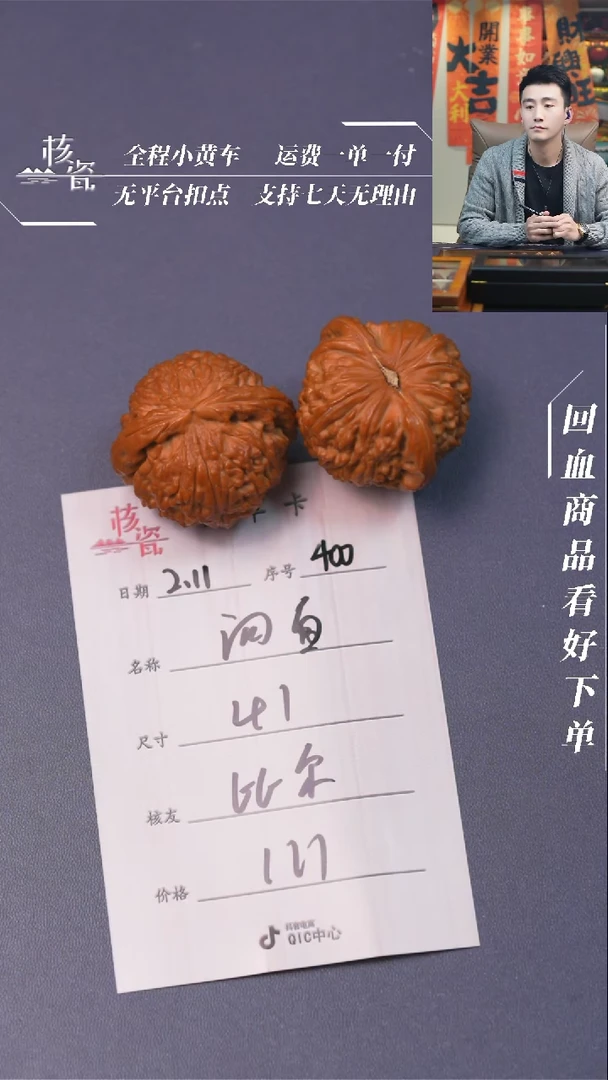 核瓷
全程小黄车 运费一单一付
无平台扣点 支持七天无理由
開業
大吉
大利
事事如
財興旺
回血商品看好下单
核瓷
卡
日期 2.11 序号 400
名称
尺寸 41
核友 比尔
价格 111
抖音电商
QIC中心